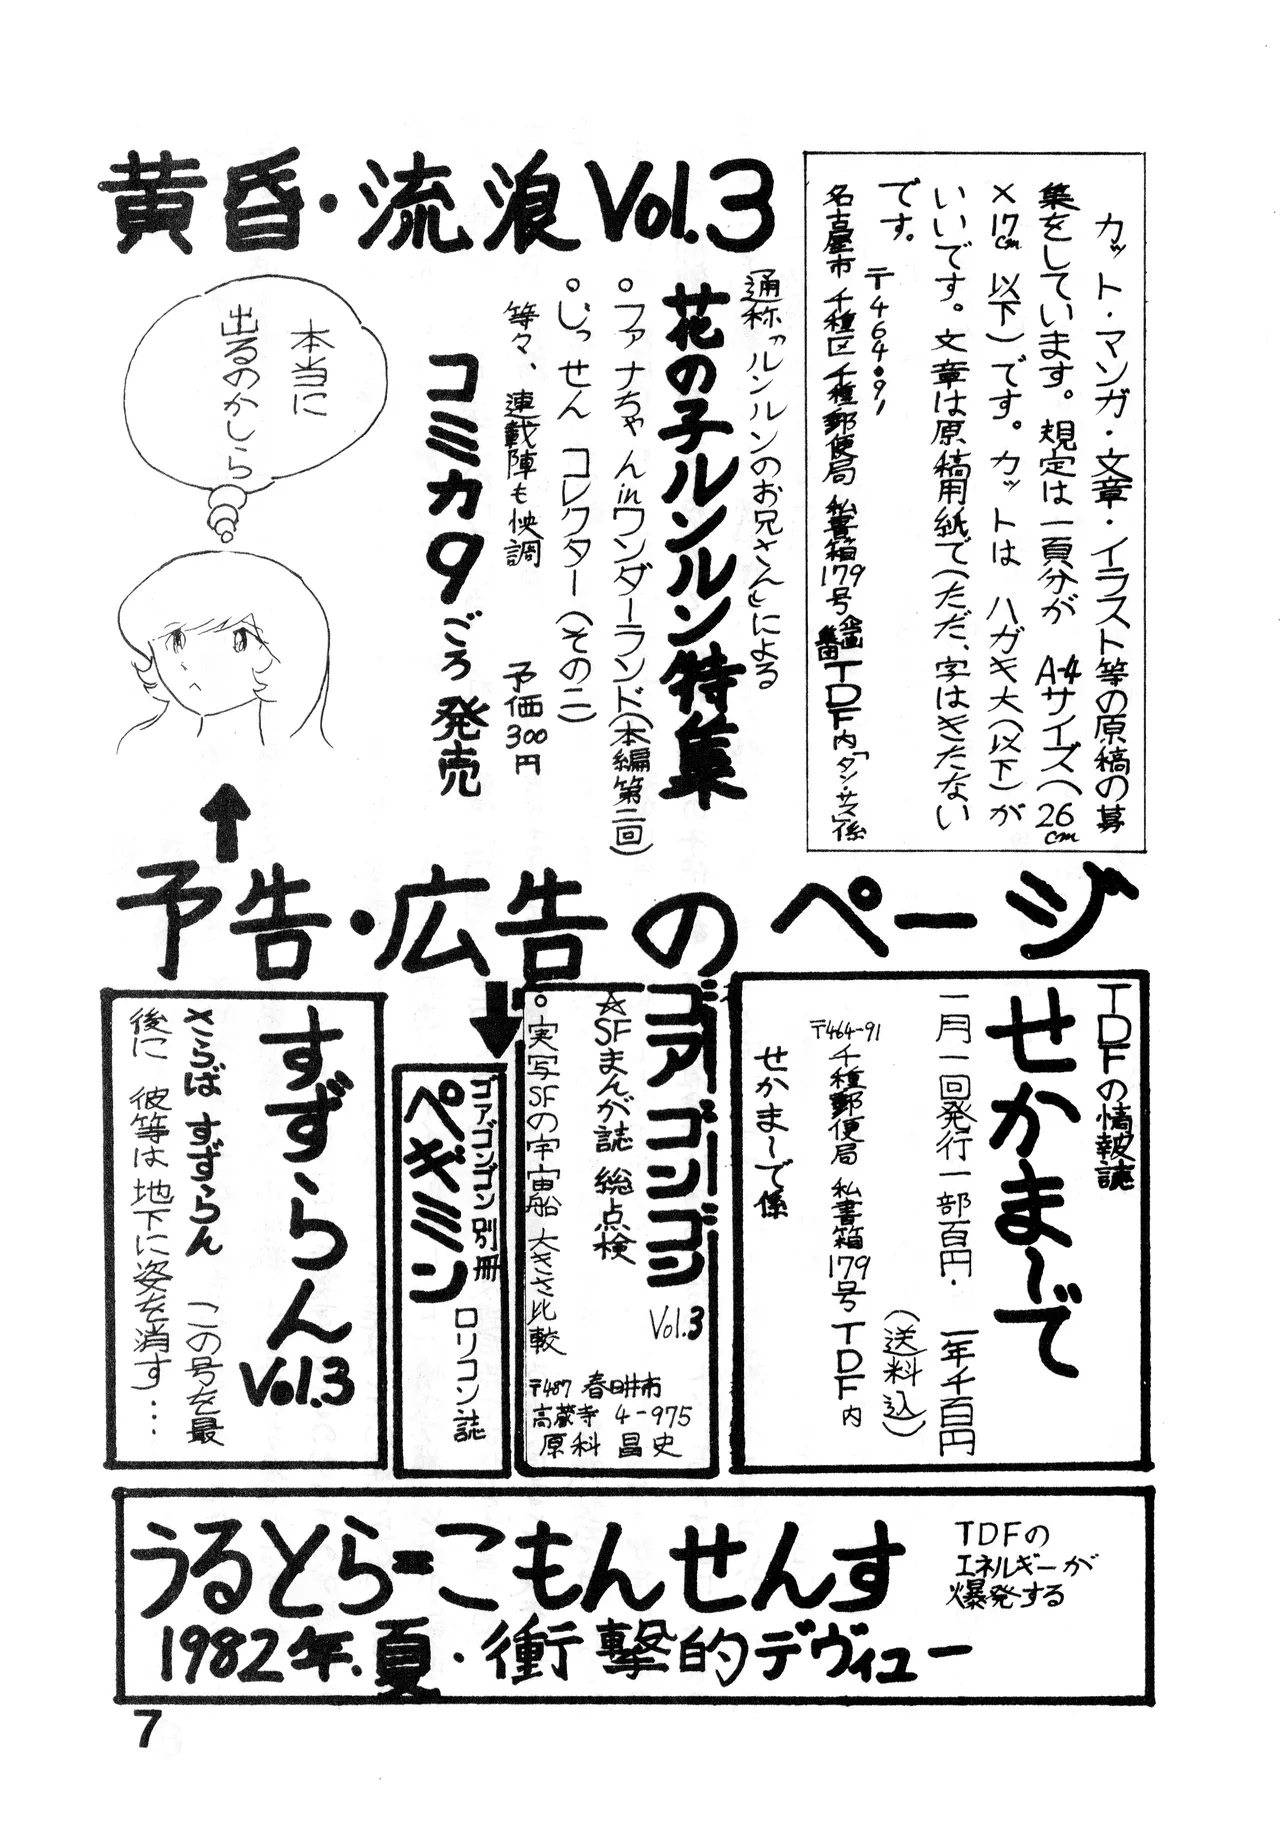 カット・マンガ・文章・イラスト等の原稿の募
集をしています。規定は一頁分が A-4サイズ(26cm
×17cm以下)です。カットは ハガキ大(以下)が
いいです。文章は原稿用紙で(ただ、字はきたない
です。
〒464・91
名古屋市 千種区 千種郵便局 私書箱179号 企画集団TDF内「タン・サス」係
黄昏・流浪Vol.3
通称〝ルンルンのお兄さん〟による
花の子ルンルン特集
○ファナちゃんinワンダーランド(本編第二回)
○じっせん コレクター(その二)
等々、連載陣も快調 予価300円
コミカ9ごろ発売
本当に
出るのかしら
予告・広告のページ
TDFの情報誌
せかま〜で
一月一回発行一部百円・ 一年千百円
(送料込)
〒464-91
千種郵便局 私書箱179号 TDF内
せかま〜で係
ゴアゴンゴン
Vol.3
☆SFまんが誌 総点検
○実写SFの宇宙船 大きさ比較
〒487 春日井市
高蔵寺 4-975
原科 昌史
ゴアゴンゴン別冊
ペギミン
ロリコン誌
すずらん
Vol.3
さらば すずらん この号を最
後に 彼等は地下に姿を消す…
うるとら=こもんせんす
TDFの
エネルギーが
爆発する
1982年.夏・衝撃的デヴィュー
7